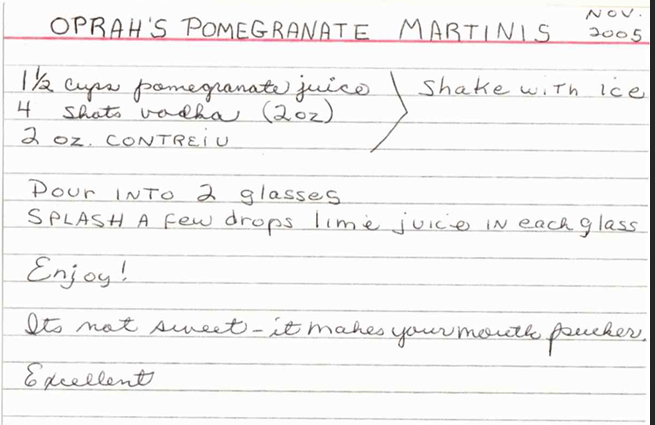 OPRAH'S POMEGRANATE MARTINIS NOV. 2005
1½ cups pomegranate juice
4 shots vodka (2oz)
2 oz. CONTREIU
Shake with ice
Pour INTO 2 glasses
SPLASH A few drops lime juice IN each glass
Enjoy!
Its not sweet - it makes your mouth pucker.
Excellent